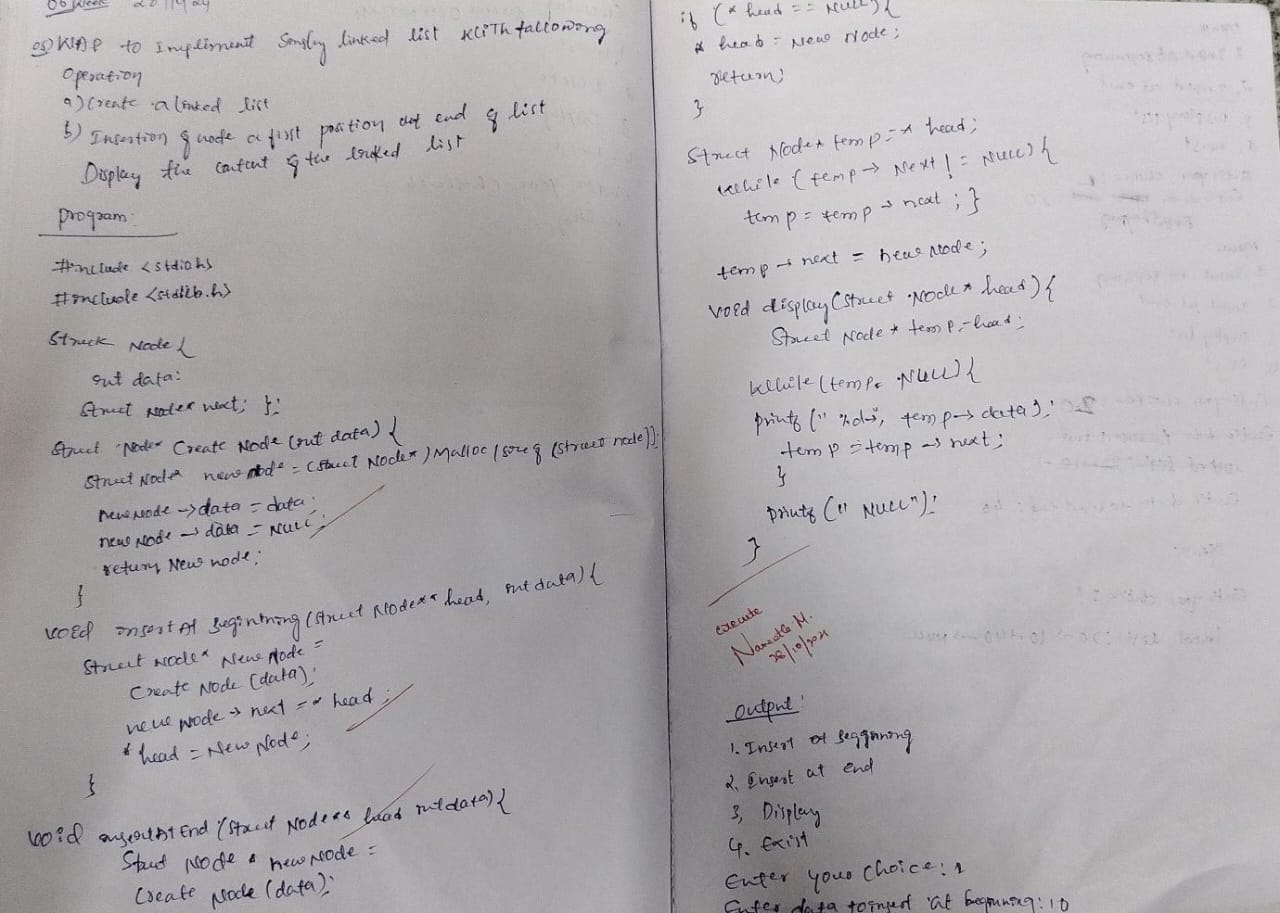 06 Week 26/11/24
05) WAP to Impliment Singly linked list With following
Operation
a) Create a linked list
b) Insertion of node a first position end of list
Display the content of the linked list
program:
#include <stdio.h>
#include <stdlib.h>
Struck Node {
int data;
Struct Node* next; };
Struct Node* Create Node (int data) {
Struct Node* new node = (Struct Node*) Malloc (size of (struct node));
new node -> data = data;
new Node -> data = NULL;
return New node;
}
void insert At Beginning (struct Node** head, int data) {
Struct Node* New Node =
Create Node (data);
new Node -> next = * head;
* head = New Node;
}
void insert At End (Struct Node** head int data) {
Struct Node * new Node =
Create Node (data);
if (* head == NULL) {
* head = New Node;
return;
}
Struct Node* temp = * head;
while (temp -> Next != NULL) {
temp = temp -> next; }
temp -> next = new Node;
void display (Struct Node* head) {
Struct Node * temp = head;
While (temp = NULL) {
printf (" %d", temp -> data);
temp = temp -> next;
}
printf (" NULL");
}
execute
output:
1. Insert at Beggnning
2. Insert at end
3, Display
4. Exist
Enter your Choice: 1
Enter data to insert at beginning: 10